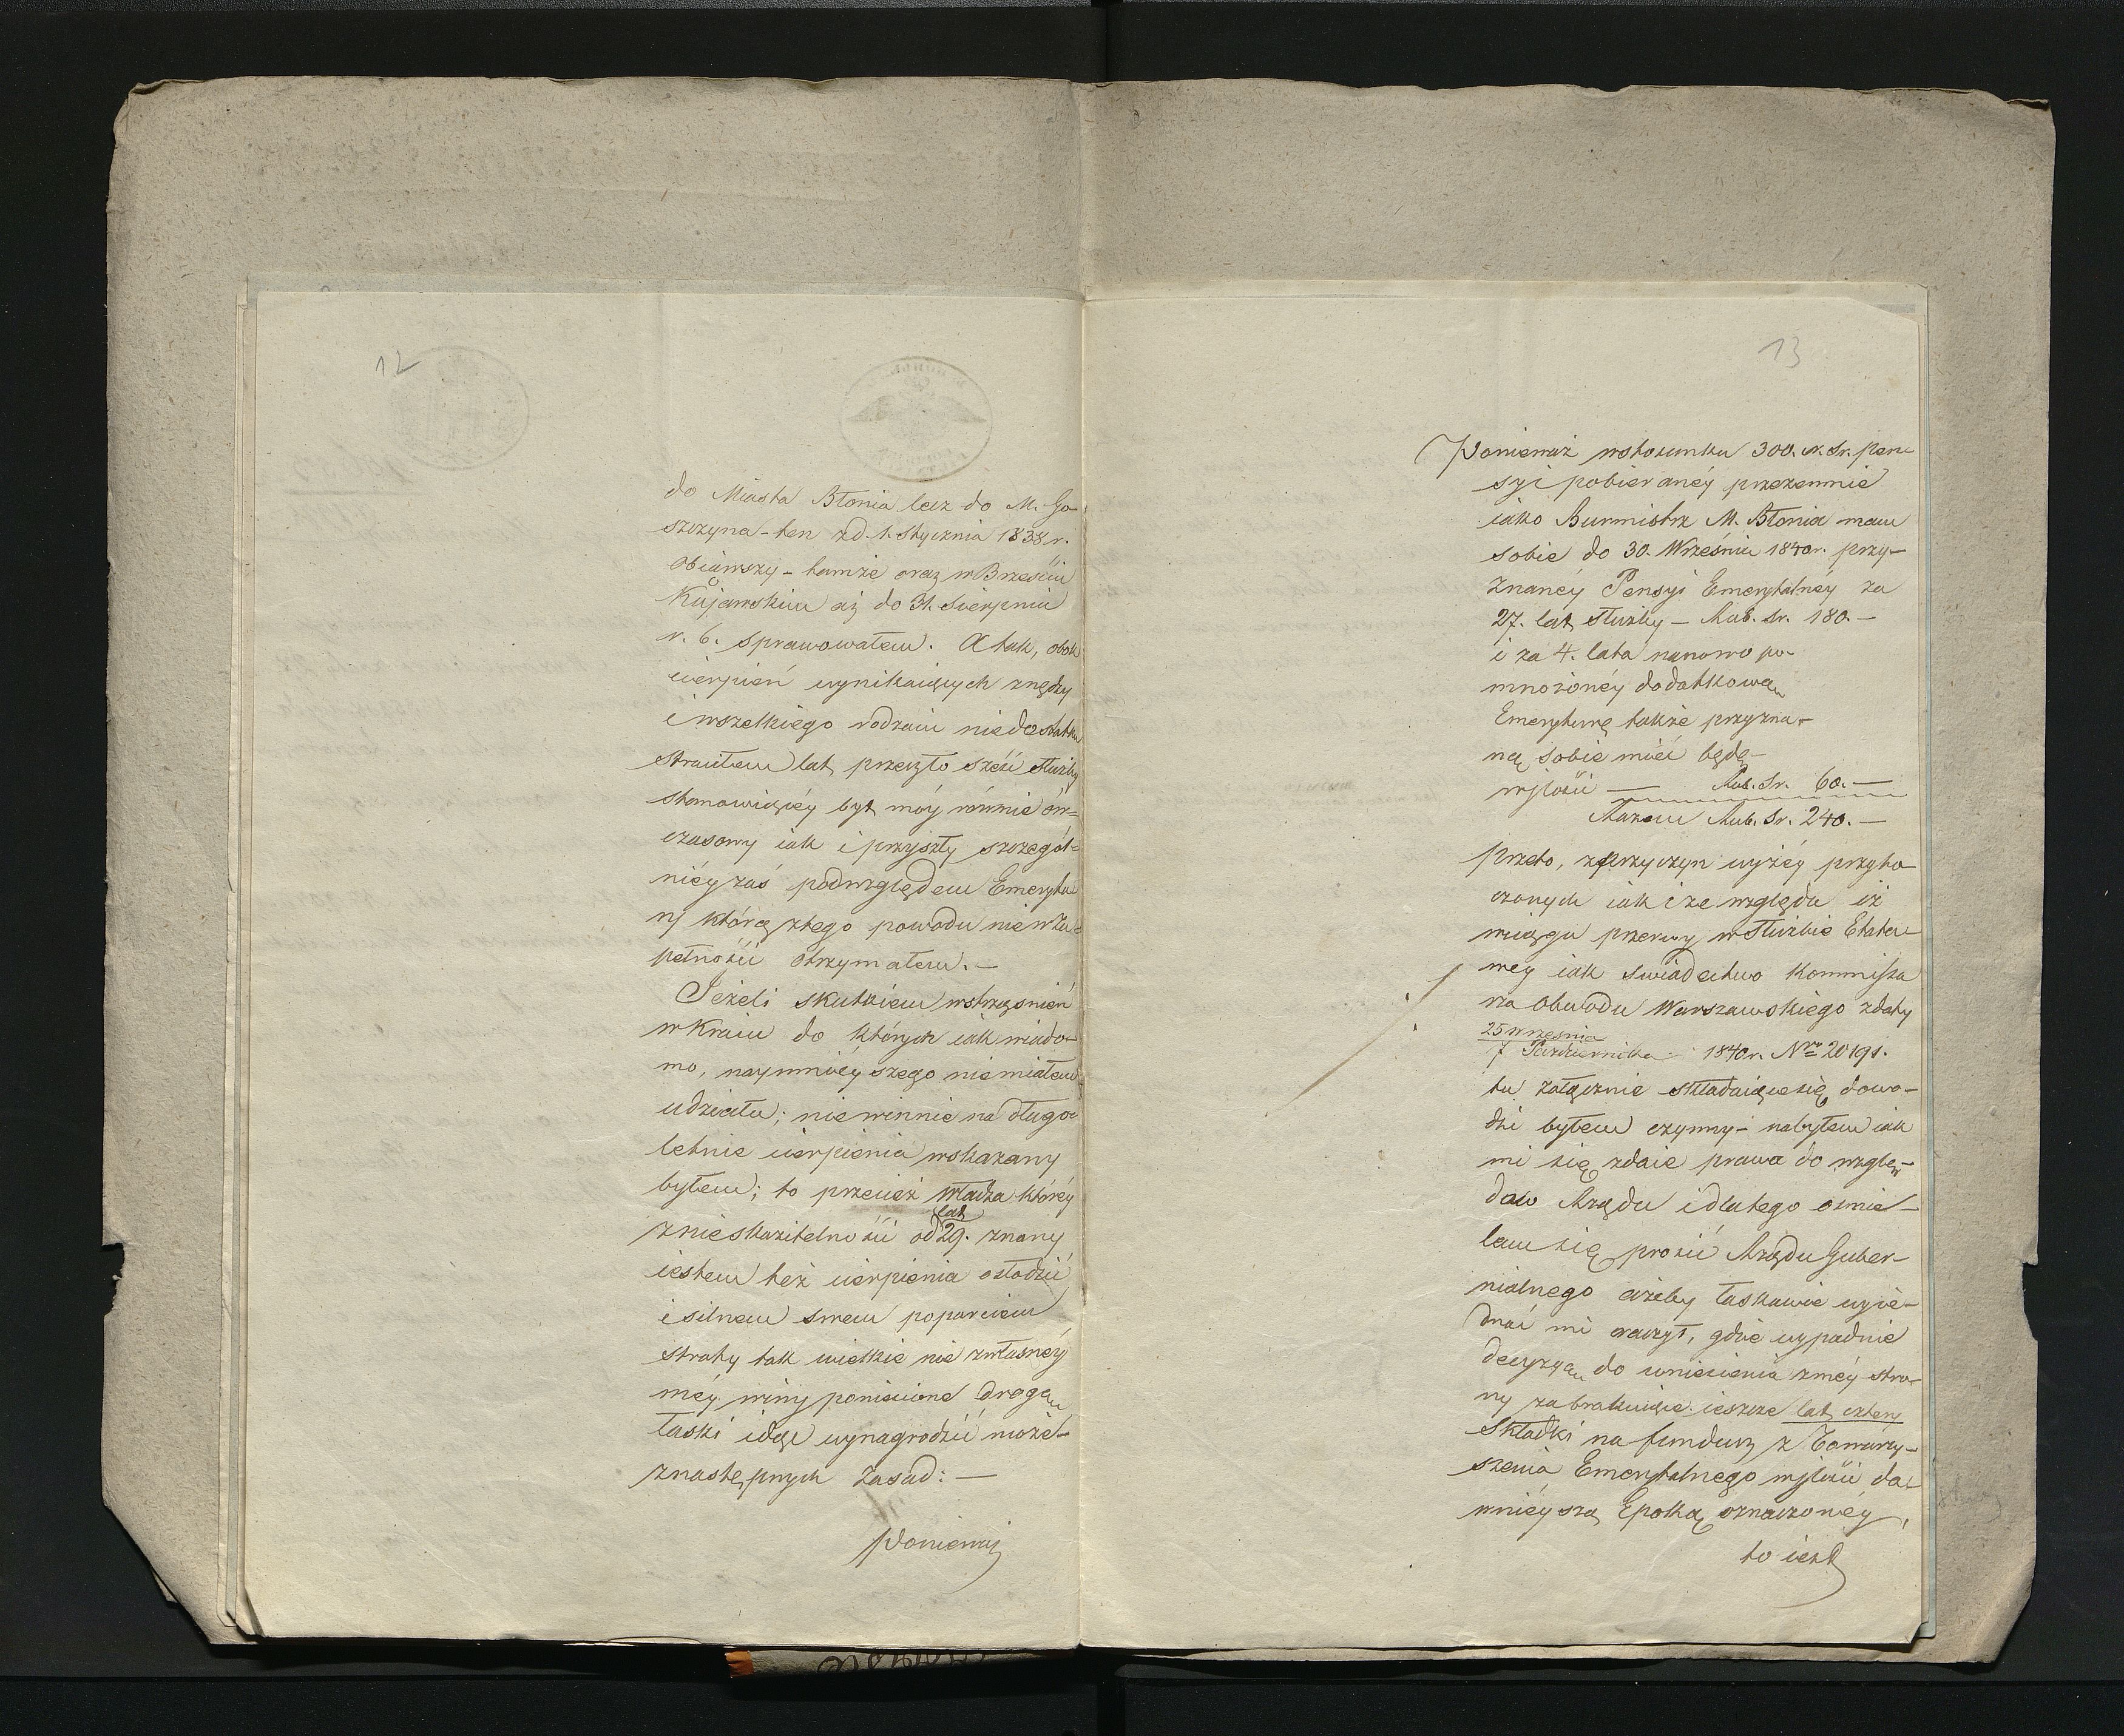 12
do Miasta Błonia lecz do M. Go-
szczyna - ten zd. 1. Stycznia 1838 r.
obiąwszy - tamże oraz w Brześciu
Kujawskim aż do 31. Sierpnia
r. b. sprawowałem. A tak, obok
cierpień wynikaiących z nędzy
i wszelkiego rodzaiu niedostatku
straciłem lat przeszło sześć służby
stanowiącéy byt móy równie ów=
czasowy iak i przyszły szczegól=
niéy zaś pod względem Emerytu
ry którą z tego powodu nie w zu=
pełności otrzymałem. —
Jeżeli skutkiem wstrząśnień
w Kraiu do których iak wiado-
mo, naymnieyszego nie miałem
udziału; niewinnie na długo-
letnie cierpienia wskazany
byłem; to przecież władza któréy
lat
z nieskazitelności od 29. znany
iestem też cierpienia osłodzić
i silnem swem poparciem
straty tak wielkie nie z własnéy
méy winy poniesione drogą
łaski idąc wynagrodzić może -
z następnych zasad: —
Ponieważ
13
Ponieważ w stosunku 300. r. Sr. pen
syi pobieranéy przezemnie
iako Burmistrz M. Błonia mam
sobie do 30. Września 1840 r. przy-
znanéy Pensyi Emerytalnéy za
27. lat służby — Rub. Sr. 180. —
i za 4. lata nanowo po-
mnożonéy dodatkową
Emeryturę także przyzna-
ną sobie mieć będę -
w ilości — Rub. Sr. 60. —
Razem Rub. Sr. 240. —
przeto, z przyczyn wyżéy przyto
czonych iak i ze względu iż
w ciągu przerwy w służbie Etato-
wey iak świadectwo Kommissa
rza Obwodu Warszawskiego z daty
25 Września
7 Października 1840 r. Nro 20191.
tu załącznie składaiące się dowo-
dzi byłem czynny - nabyłem iak
mi się zdaie prawa do wzglę-
dów Rządu i dlatego ośmie-
lam się prosić Rządu Guber-
nialnego ażeby łaskawie wyie-
dnać mi raczył, gdzie wypadnie
decyzyą do wniesienia z méy stro-
ny za brakuiące ieszcze lat cztery
składki na fundusz Stowarzy-
szenia Emerytalnego w ilości da-
wnieyszą Epoką oznaczonéy,
to iest